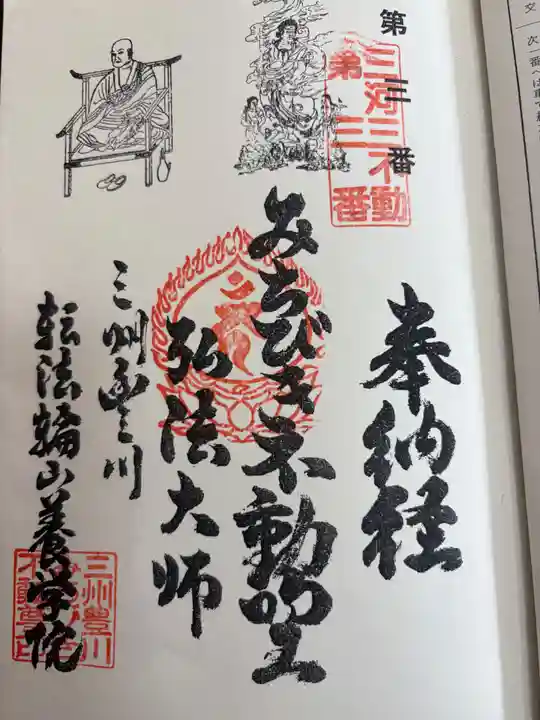 第三番
三河三不動
第三番
奉納経
みちびき不動堂
弘法大師
三州豊川
転法輪山養学院
三州豊川